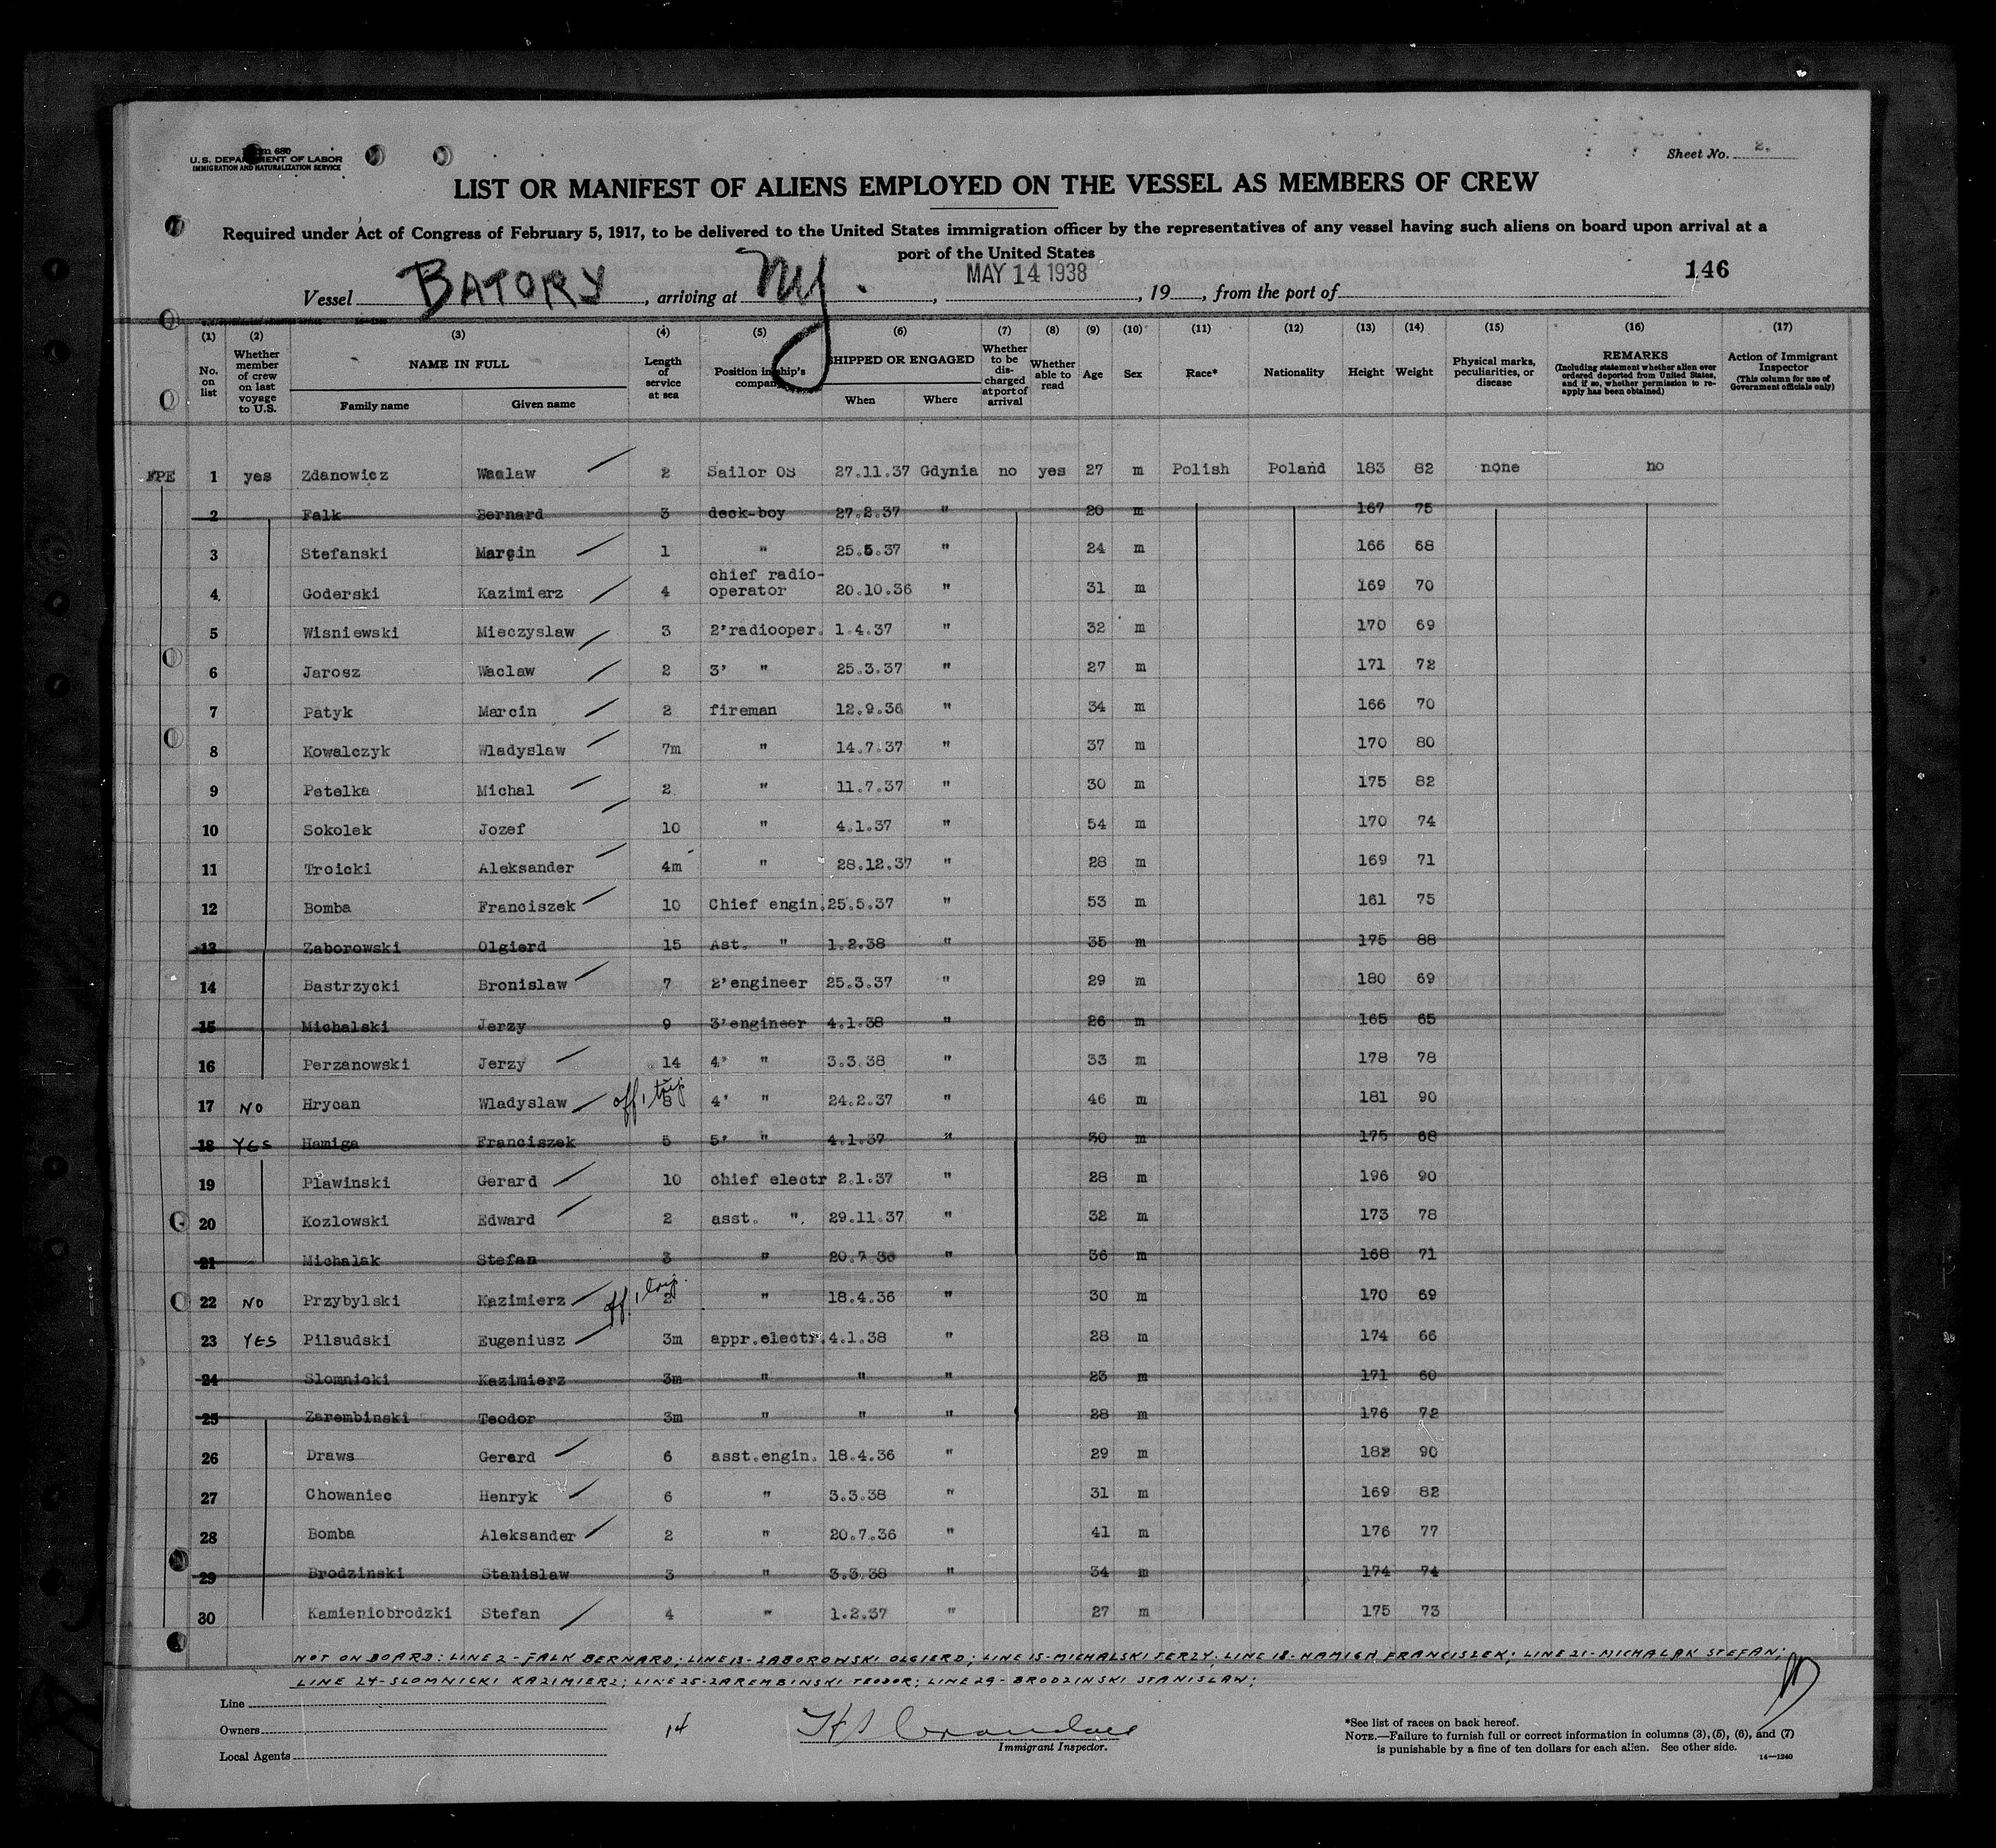 Form 680
U.S. DEPARTMENT OF LABOR
IMMIGRATION AND NATURALIZATION SERVICE
Sheet No. 2.
LIST OR MANIFEST OF ALIENS EMPLOYED ON THE VESSEL AS MEMBERS OF CREW
Required under Act of Congress of February 5, 1917, to be delivered to the United States immigration officer by the representatives of any vessel having such aliens on board upon arrival at a
port of the United States
146
Vessel BATORY, arriving at NY., MAY 14 1938, 19, from the port of
(1) (2) (3) (4) (5) (6) (7) (8) (9) (10) (11) (12) (13) (14) (15) (16) (17)
No. on list Whether member of crew on last voyage to U.S. NAME IN FULL Family name Given name Length of service at sea Position in ship's company SHIPPED OR ENGAGED When Where Whether to be discharged at port of arrival Whether able to read Age Sex Race* Nationality Height Weight Physical marks, peculiarities, or disease REMARKS (Including statement whether alien ever ordered deported from United States, and if so, whether permission to reapply has been obtained) Action of Immigrant Inspector (This column for use of Government officials only)
FPE 1 yes Zdanowicz Waclaw 2 Sailor OS 27.11.37 Gdynia no yes 27 m Polish Poland 183 82 none no
2 Falk Bernard 3 deck-boy 27.2.37 " 20 m 167 75
3 Stefanski Marcin 1 " 25.5.37 " 24 m 166 68
4 Goderski Kazimierz 4 chief radio-operator 20.10.36 " 31 m 169 70
5 Wisniewski Mieczyslaw 3 2'radiooper. 1.4.37 " 32 m 170 69
6 Jarosz Waclaw 2 3' " 25.3.37 " 27 m 171 72
7 Patyk Marcin 2 fireman 12.9.36 " 34 m 166 70
8 Kowalczyk Wladyslaw 7m " 14.7.37 " 37 m 170 80
9 Petelka Michal 2 " 11.7.37 " 30 m 175 82
10 Sokolek Jozef 10 " 4.1.37 " 54 m 170 74
11 Troicki Aleksander 4m " 28.12.37 " 28 m 169 71
12 Bomba Franciszek 10 Chief engin. 25.5.37 " 53 m 161 75
13 Zaborowski Olgierd 15 Ast. " 1.2.38 " 35 m 175 88
14 Bastrzycki Bronislaw 7 2'engineer 25.3.37 " 29 m 180 69
15 Michalski Jerzy 9 3'engineer 4.1.38 " 26 m 165 65
16 Perzanowski Jerzy 14 4' " 3.3.38 " 33 m 178 78
17 NO Hrycan Wladyslaw off 1 trip 8 4' " 24.2.37 " 46 m 181 90
18 YES Hamiga Franciszek 5 5' " 4.1.37 " 30 m 175 68
19 Plawinski Gerard 10 chief electr 2.1.37 " 28 m 196 90
20 Kozlowski Edward 2 asst. ". 29.11.37 " 32 m 173 78
21 Michalak Stefan 3 " 20.7.36 " 36 m 168 71
22 NO Przybylski Kazimierz off 1 trip. 2 " 18.4.36 " 30 m 170 69
23 YES Pilsudski Eugeniusz 3m appr.electr. 4.1.38 " 28 m 174 66
24 Slomnicki Kazimierz 3m " " " 23 m 171 60
25 Zarembinski Teodor 3m " " " 28 m 176 72
26 Draws Gerard 6 asst.engin. 18.4.36 " 29 m 182 90
27 Chowaniec Henryk 6 " 3.3.38 " 31 m 169 82
28 Bomba Aleksander 2 " 20.7.36 " 41 m 176 77
29 Brodzinski Stanislaw 3 " 3.3.38 " 34 m 174 74
30 Kamieniobrodzki Stefan 4 " 1.2.37 " 27 m 175 73
NOT ON BOARD: LINE 2 - FALK BERNARD; LINE 13 - ZABOROWSKI OLGIERD; LINE 15 - MICHALSKI JERZY; LINE 18 - HAMIGA FRANCISZEK; LINE 21 - MICHALAK STEFAN;
LINE 24 - SLOMNICKI KAZIMIERZ; LINE 25 - ZAREMBINSKI TEODOR; LINE 29 - BRODZINSKI STANISLAW;
Line
Owners
Local Agents
14
Immigrant Inspector.
*See list of races on back hereof.
NOTE.—Failure to furnish full or correct information in columns (3), (5), (6), and (7)
is punishable by a fine of ten dollars for each alien. See other side.
14—1240